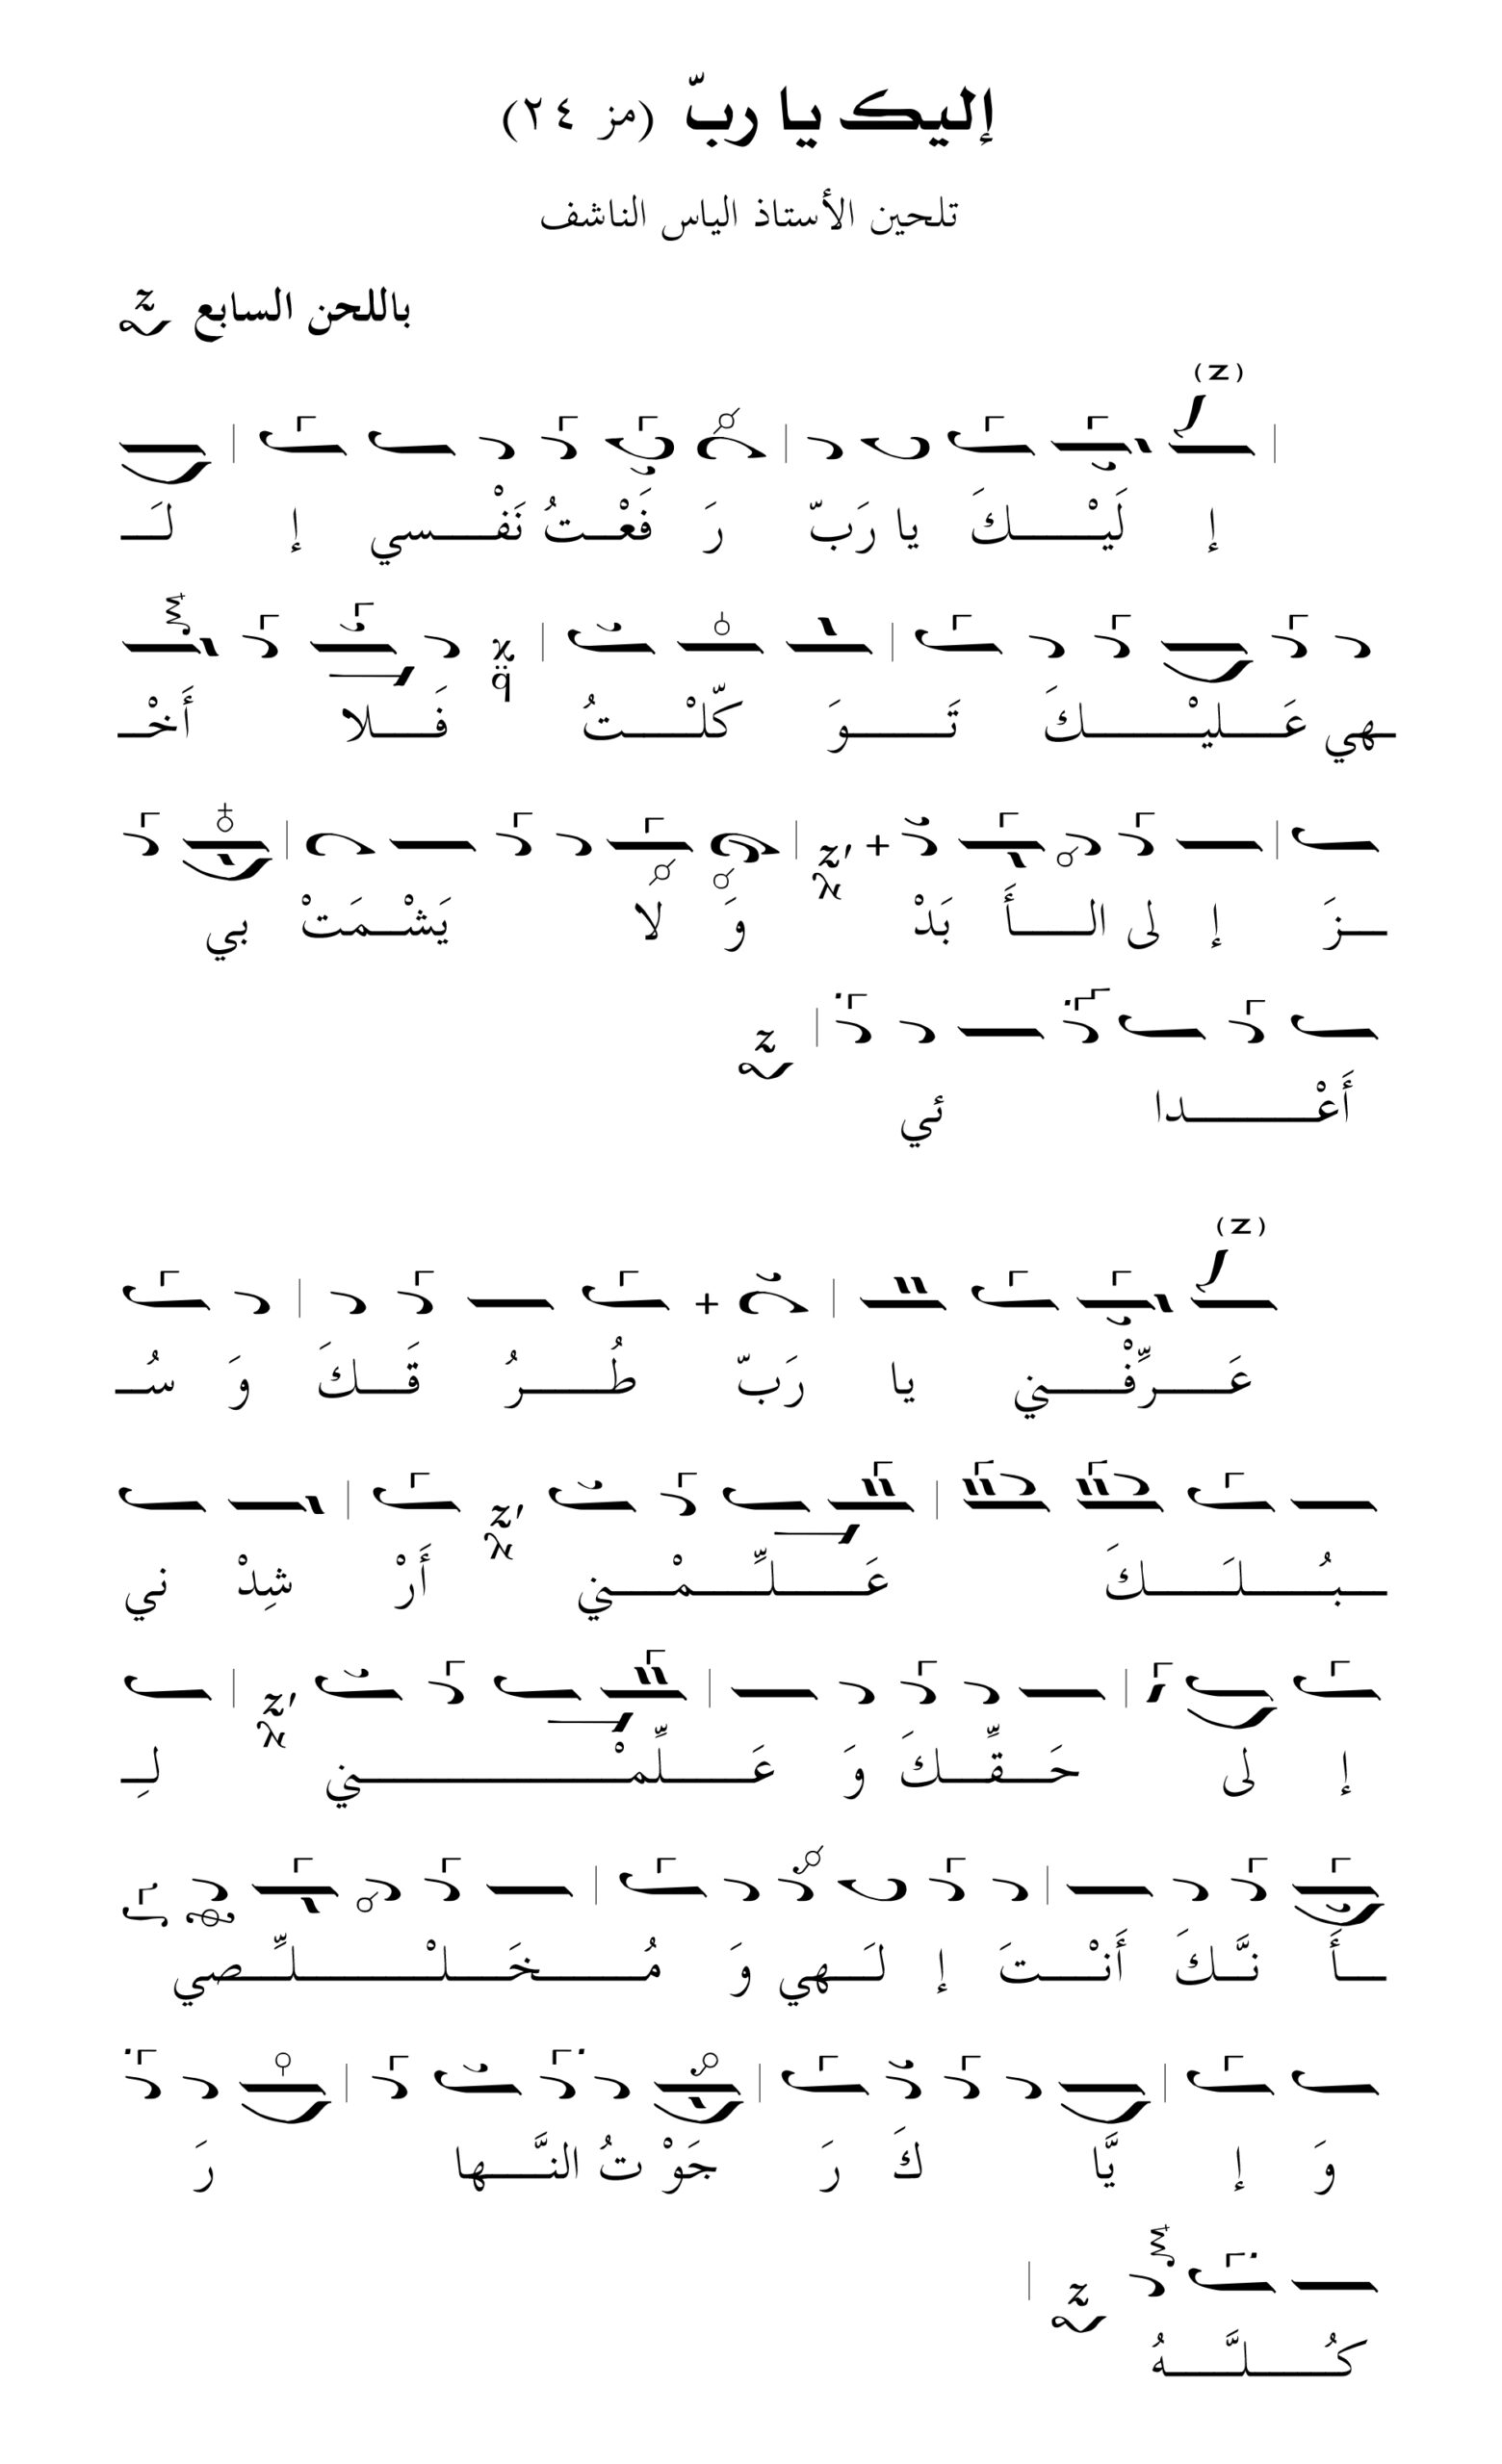 إليك يا ربّ (مز ٢٤)
تلحين الأستاذ الياس الناشف
باللحن السابع
(z)
إ لَيْـــكَ يا رَبّ رَ فَعْــتُ نَفْــسي إ لَــ
ـهي عَــليْــــكَ تَـــوَ كّلْـــتُ فَــلا أَخْــ
ـزَ إ لى الــأَ بَدْ وَ لا يَشْــمَتْ بي
أَعْــــدا ئي
(z)
عَـــرِّفْـــني يا رَبّ طُـــرُ قَــكَ وَ سُــ
ـــبُــــلَــــكَ عَــــلِّــمْــني أَرْ شِدْ ني
إ لى حَــقِّــكَ وَ عَـــلِّمْــــــــني لِــ
ـــأَ نَّــكَ أَنْــتَ إ لَــهي وَ مُـــخَــلْــــلِّــصي
وَ إ يَّا كَ رَ جَوْ تُ النَّــها رَ
كُـــلَّـــهُ